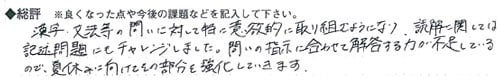 ◆総評 ※良くなった点や今後の課題などを記入して下さい。
漢字・文法等の問いに対して特に意欲的に取り組むようになり、読解に関しては
記述問題にもチャレンジしました。問いの指示に合わせて解答する力が不足している
ので、夏休みに向けてもの部分を強化していきます。